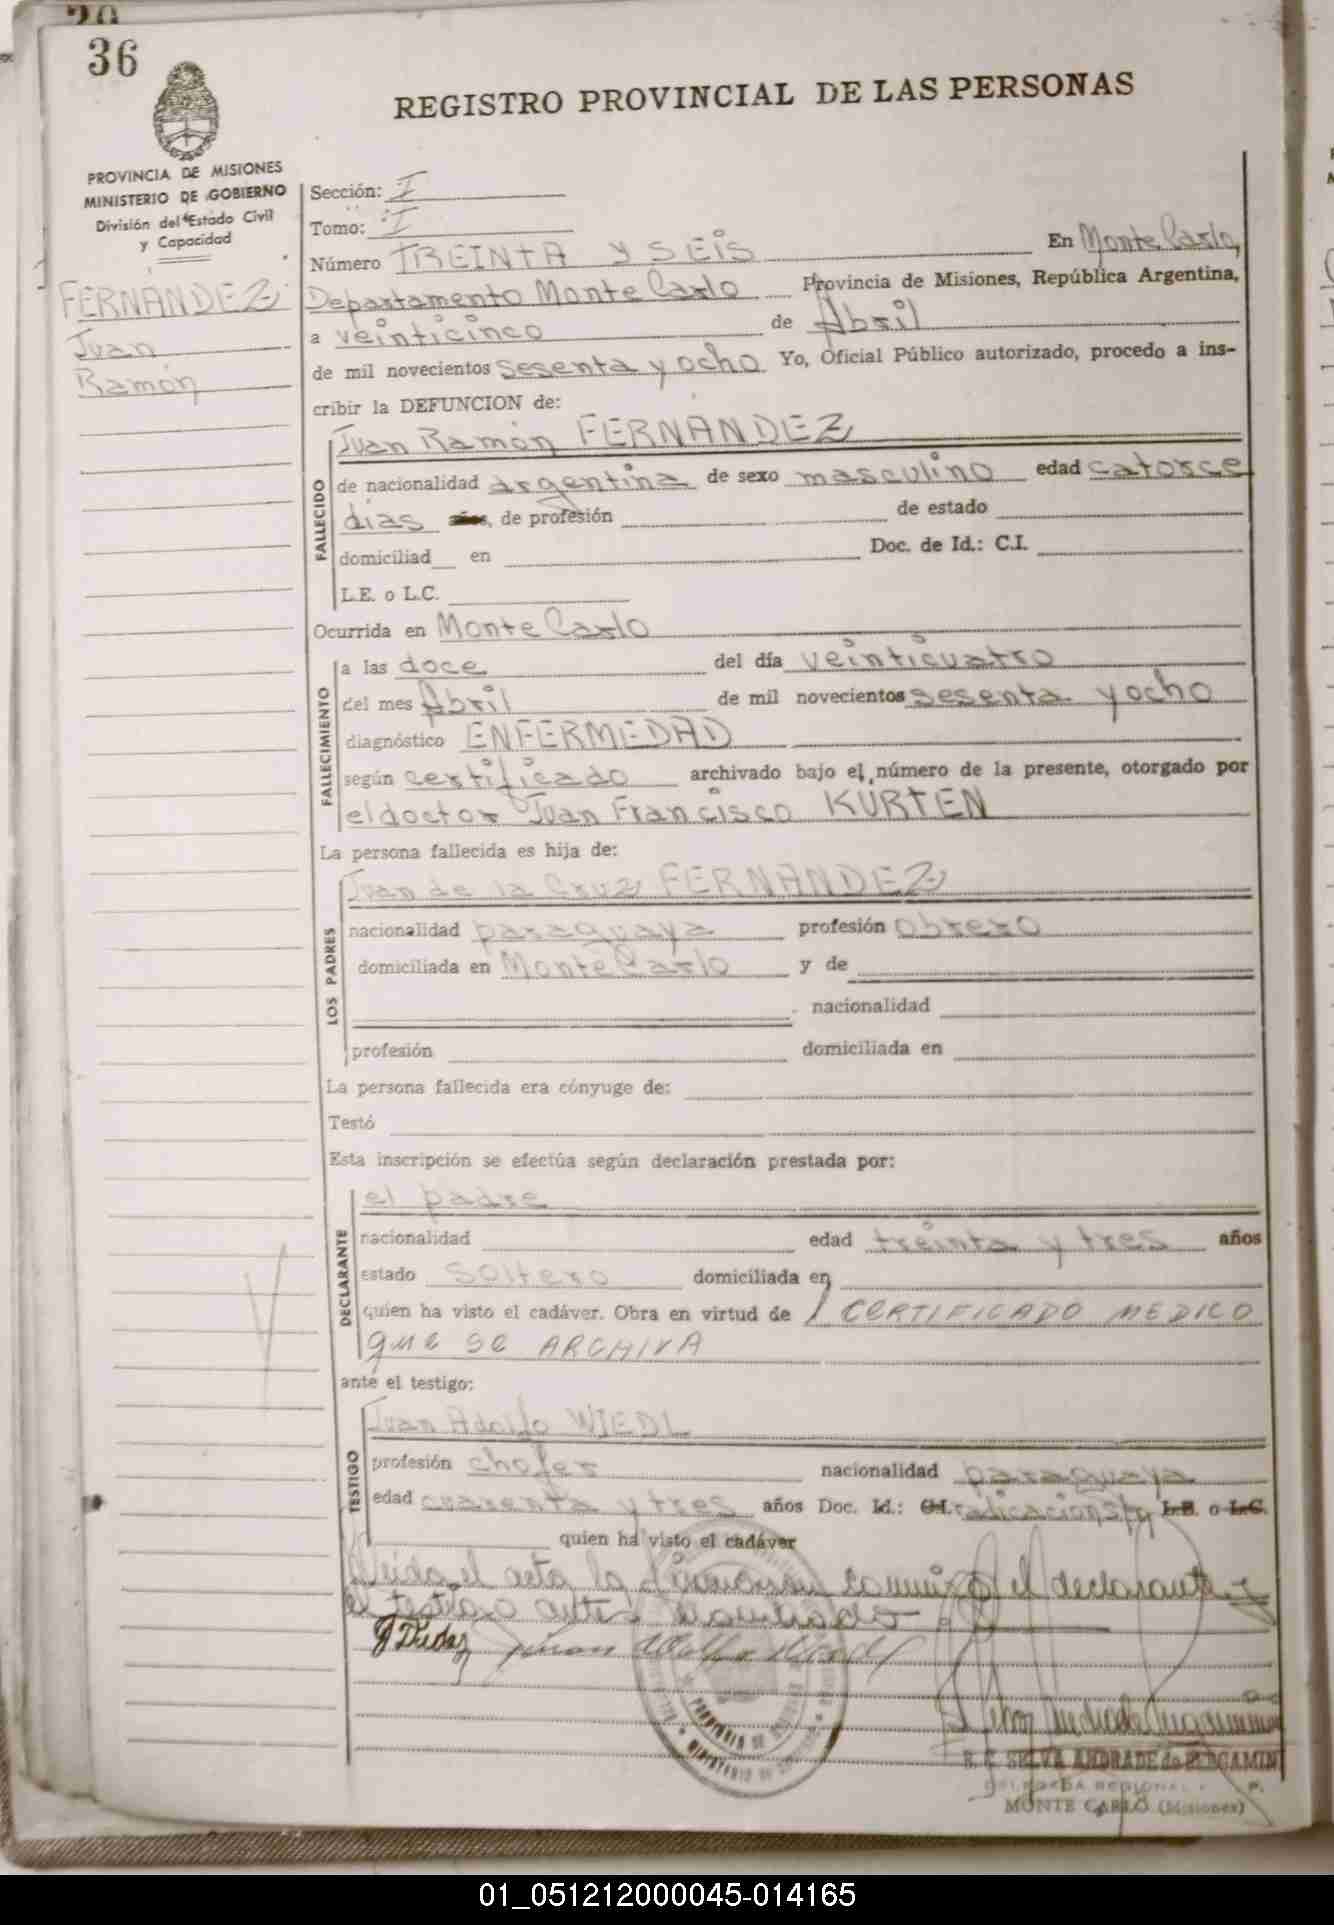 36
REGISTRO PROVINCIAL DE LAS PERSONAS
PROVINCIA DE MISIONES
MINISTERIO DE GOBIERNO
División del Estado Civil
y Capacidad
FERNANDEZ
Juan
Ramón
Sección: I
Tomo: I
Número TREINTA Y SEIS En Monte Carlo,
Departamento Monte Carlo Provincia de Misiones, República Argentina,
a veinticinco de Abril
de mil novecientos sesenta y ocho Yo, Oficial Público autorizado, procedo a ins-
cribir la DEFUNCION de:
FALLECIDO
Juan Ramón FERNANDEZ
de nacionalidad argentina de sexo masculino edad catorce
días años, de profesión de estado
domiciliad en Doc. de Id.: C.I.
L.E. o L.C.
Ocurrida en Monte Carlo
FALLECIMIENTO
a las doce del día veinticuatro
del mes Abril de mil novecientos sesenta y ocho
diagnóstico ENFERMEDAD
según certificado archivado bajo el número de la presente, otorgado por
el doctor Juan Francisco KURTEN
La persona fallecida es hija de:
LOS PADRES
Juan de la Cruz FERNANDEZ
nacionalidad paraguaya profesión obrero
domiciliada en Monte Carlo y de
nacionalidad
profesión domiciliada en
La persona fallecida era cónyuge de:
Testó
Esta inscripción se efectúa según declaración prestada por:
DECLARANTE
el padre
nacionalidad edad treinta y tres años
estado soltero domiciliada en
quien ha visto el cadáver. Obra en virtud de CERTIFICADO MEDICO
que se ARCHIVA
ante el testigo:
TESTIGO
Juan Adolfo WIEDL
profesión chofer nacionalidad paraguaya
edad cuarenta y tres años Doc. Id.: C.I. L.E. o L.C.
quien ha visto el cadáver
Leida el acta la firman conmigo el declarante y
el testigo antes nombrado
Juan Adolfo Wiedl
PROVINCIA DE MISIONES
MINISTERIO DE
SELVA ANDRADE de BERGAMIN
DELEGADA REGIONAL
MONTE CARLO (Misiones)
01_051212000045-014165